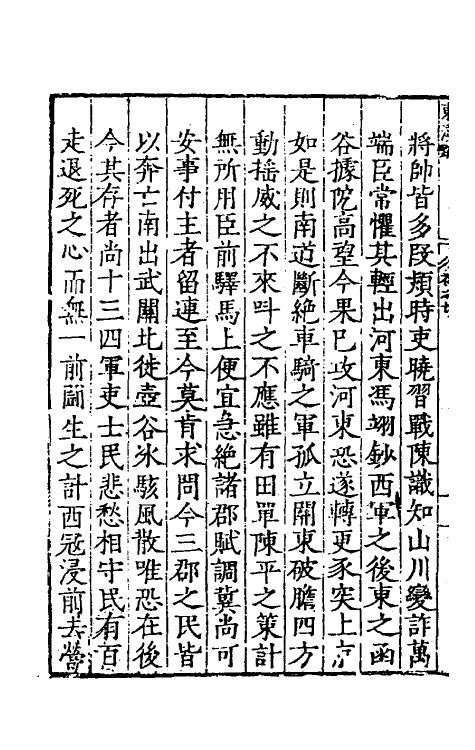 將帥皆多叚熲時吏曉習戰陳識知山川變詐萬
端臣常懼其輕出河東馮翊鈔西軍之後東之函
谷據阸高望今果已攻河東恐遂轉更豕突上京
如是則南道斷絕車騎之軍孤立關東破膽四方
動摇威之不來呌之不應雖有田單陳平之策計
無所用臣前驛馬上便宜急絕諸郡賦調兾尚可
安事付主者留連至今莫肯求問今三郡之民皆
以奔亡南出武關北徙壺谷氷駭風散唯恐在後
今其存者尚十三四軍吏士民悲愁相守民有百
走退死之心而無一前鬭生之計西冦浸前去營